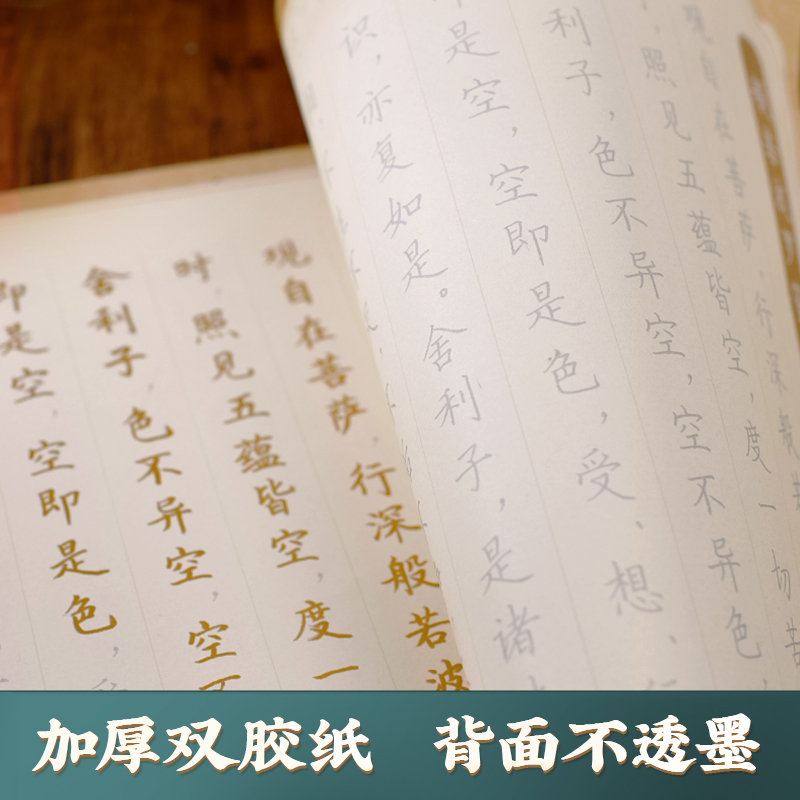 观自在菩萨，行深般
，照见五蕴皆空，度一切苦
利子，色不异空，空不异色
是空，空即是色，受、想、
识，亦复如是。舍利子，是诸
观自在菩萨，行深般若波
时，照见五蕴皆空，度一
舍利子，色不异空，空不
即是空，空即是色，
加厚双胶纸 背面不透墨